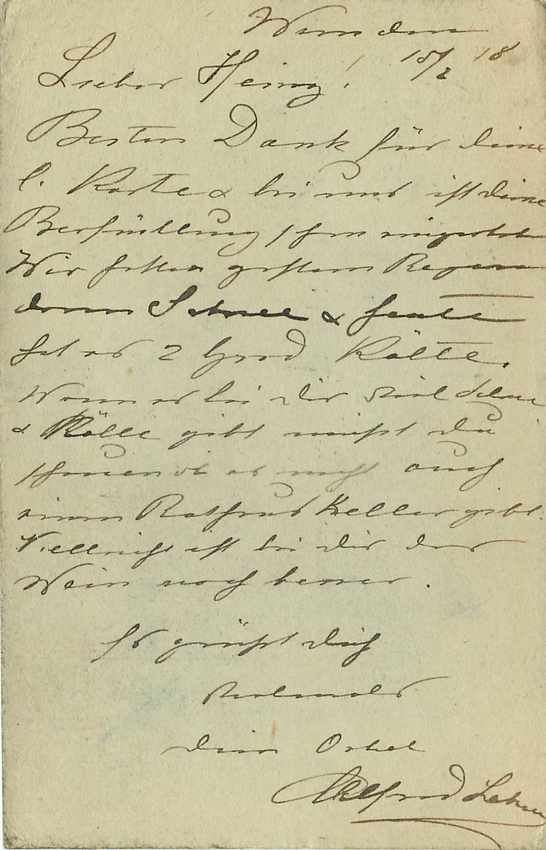 Lieber Heinz! 15/2 18
Besten Dank für deine
l. Karte & bei uns ist deine
schon
Wir hatten gestern Regen
dann Schnee & heute
hat es 2 Grad Kälte.
Wenn es bei Dir viel Schnee
& Kälte gibt mußt du
schauen ob es nicht auch
einen Rathaus Keller gibt.
Vielleicht ist bei Dir der
Wein noch besser.
Es grüßt Dich
dein Onkel
Alfred